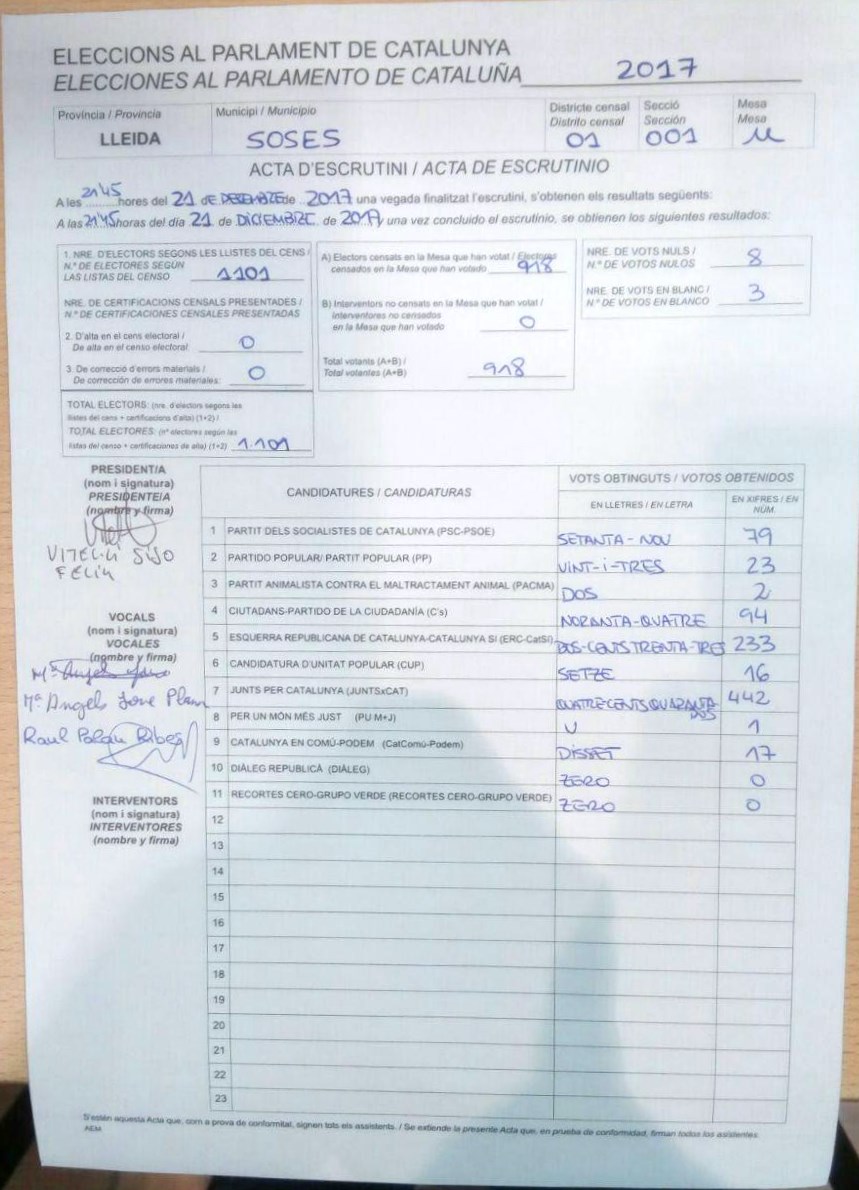 ELECCIONS AL PARLAMENT DE CATALUNYA
ELECCIONES AL PARLAMENTO DE CATALUÑA 2017
Província / Provincia
LLEIDA
Municipi / Municipio
SOSES
Districte censal
Distrito censal
01
Secció
Sección
001
Mesa
Mesa
U
ACTA D'ESCRUTINI / ACTA DE ESCRUTINIO
A les 21'45 hores del 21 de DECEMBRE de 2017 una vegada finalitzat l'escrutini, s'obtenen els resultats següents:
A las 21'45 horas del día 21 de DICIEMBRE de 2017 una vez concluido el escrutinio, se obtienen los siguientes resultados:
1. NRE. D'ELECTORS SEGONS LES LLISTES DEL CENS /
N.º DE ELECTORES SEGÚN
LAS LISTAS DEL CENSO 1101
NRE. DE CERTIFICACIONS CENSALS PRESENTADES /
N.º DE CERTIFICACIONES CENSALES PRESENTADAS
2. D'alta en el cens electoral /
De alta en el censo electoral: 0
3. De correcció d'errors materials /
De corrección de errores materiales: 0
TOTAL ELECTORS: (nre. d'electors segons les
llistes del cens + certificacions d'alta) (1+2) /
TOTAL ELECTORES: (nº electores según las
listas del censo + certificaciones de alta) (1+2) 1.101
A) Electors censats en la Mesa que han votat / Electores
censados en la Mesa que han votado 918
B) Interventors no censats en la Mesa que han votat /
Interventores no censados
en la Mesa que han votado 0
Total votants (A+B) /
Total votantes (A+B) 918
NRE. DE VOTS NULS /
N.º DE VOTOS NULOS 8
NRE. DE VOTS EN BLANC /
N.º DE VOTOS EN BLANCO 3
PRESIDENT/A
(nom i signatura)
PRESIDENTE/A
(nombre y firma)
SISO
FELIU
VOCALS
(nom i signatura)
VOCALES
(nombre y firma)
Mª Angels Jove
Raul Ribes
INTERVENTORS
(nom i signatura)
INTERVENTORES
(nombre y firma)
CANDIDATURES / CANDIDATURAS
VOTS OBTINGUTS / VOTOS OBTENIDOS
EN LLETRES / EN LETRA
EN XIFRES / EN NÚM.
1 PARTIT DELS SOCIALISTES DE CATALUNYA (PSC-PSOE) SETANTA-NOU 79
2 PARTIDO POPULAR/ PARTIT POPULAR (PP) VINT-i-TRES 23
3 PARTIT ANIMALISTA CONTRA EL MALTRACTAMENT ANIMAL (PACMA) DOS 2
4 CIUTADANS-PARTIDO DE LA CIUDADANÍA (C's) NORANTA-QUATRE 94
5 ESQUERRA REPUBLICANA DE CATALUNYA-CATALUNYA SÍ (ERC-CatSí) DOS-CENTS TRENTA-TRES 233
6 CANDIDATURA D'UNITAT POPULAR (CUP) SETZE 16
7 JUNTS PER CATALUNYA (JUNTSxCAT) QUATRECENTS QUARANTA DOS 442
8 PER UN MÓN MÉS JUST (PU M+J) U 1
9 CATALUNYA EN COMÚ-PODEM (CatComú-Podem) DISSET 17
10 DIÀLEG REPUBLICÀ (DIÀLEG) ZERO 0
11 RECORTES CERO-GRUPO VERDE (RECORTES CERO-GRUPO VERDE) ZERO 0
12
13
14
15
16
17
18
19
20
21
22
23
S'estén aquesta Acta que, com a prova de conformitat, signen tots els assistents. / Se extiende la presente Acta que, en prueba de conformidad, firman todos los asistentes.
AEM